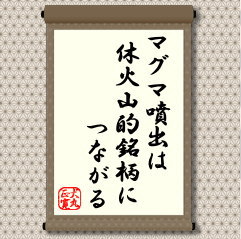 マグマ噴出は
休火山的銘柄に
つながる